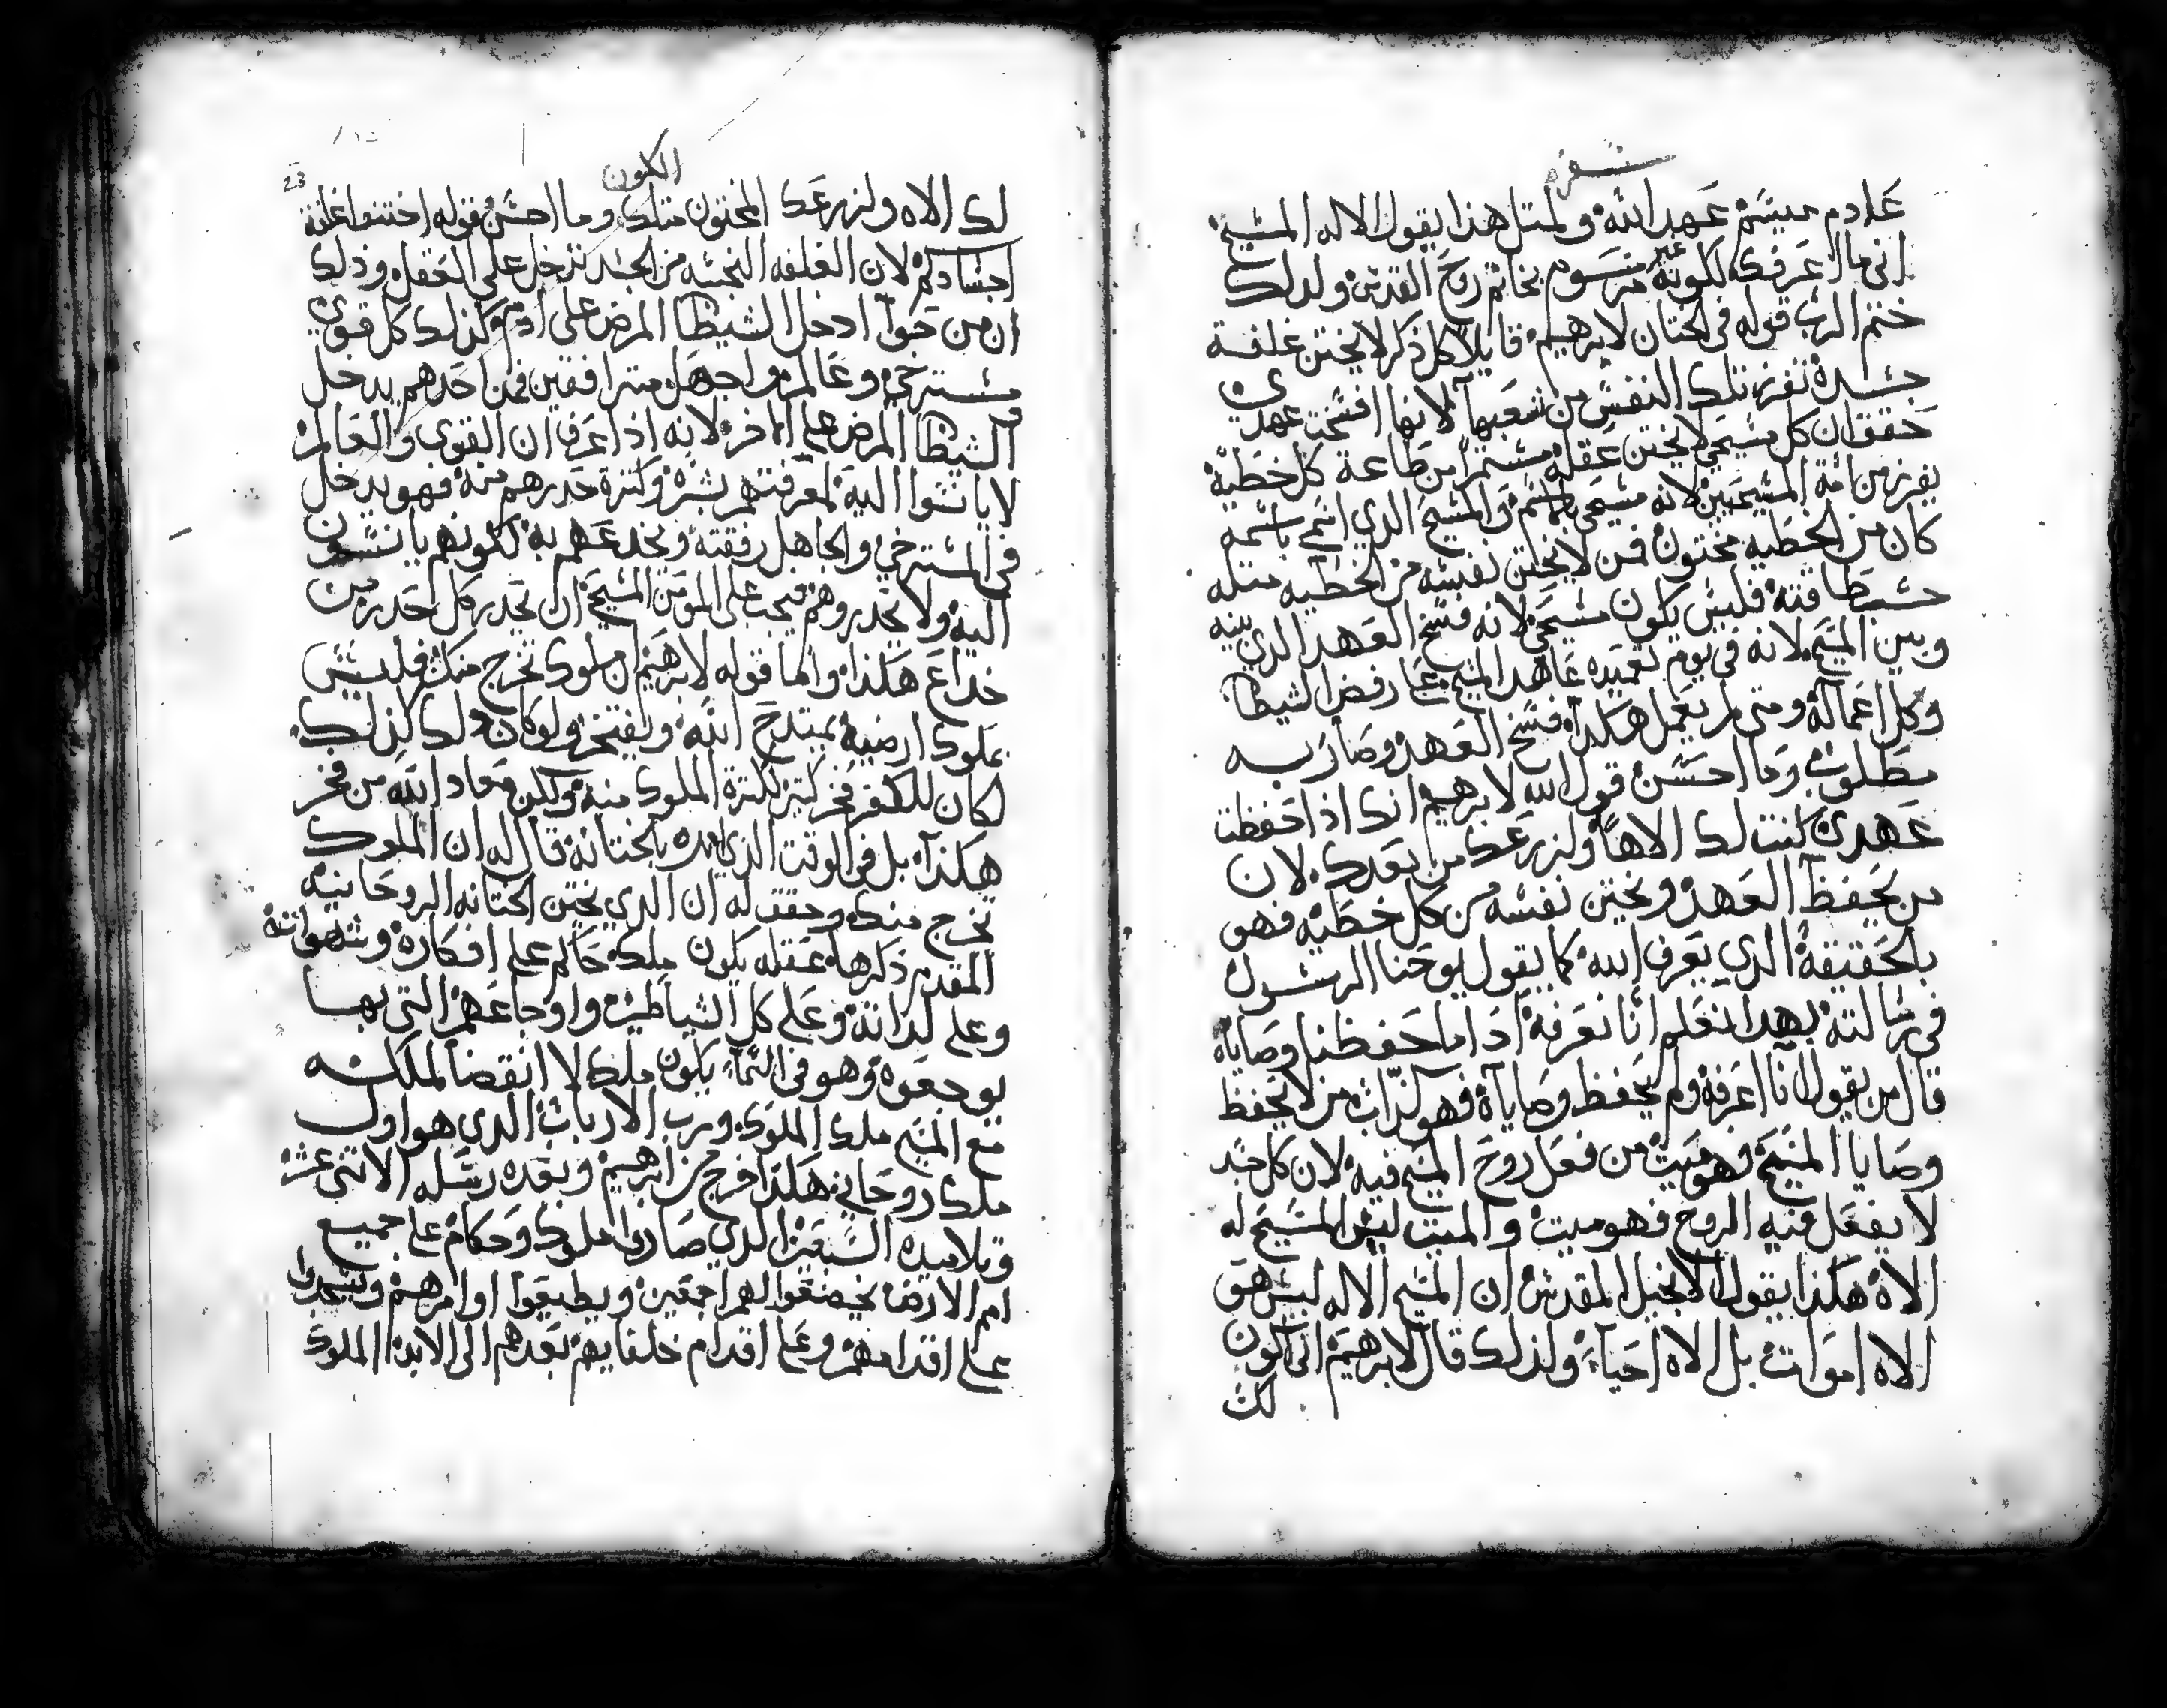 سفر
عادم ميسم عهد الله ولمتل هذا يقول الاله المسيح
انى ما اعرفك لكونه غير مرسوم بخاتم روح القدس ولدلك
ختم الرب قوله فى الختان لابرهيم قايلا كل ذكر لا يختن غلفة
جسده تفرز تلك النفس من شعبها لانها افسخت عهدى
حقق ان كل مسيحي لا يختن عقله مستمرا من طاعة كل خطية
يفرز من امة المسيحيين لانه مسيحى بالاسم والمسيح الدي اتسمى باسمه
كان من الخطيه مختون فمن لا يختن نفسه من الخطيه متله
حسب طاقته فليس يكون مسيحي لانه فسخ العهد الدي بينه
وبين المسيح لانه في يوم تعميده عاهد المسيح على رفض الشيطان
وكل اعماله ومتى لم يعمل هكدا فسخ العهد وصار به
مطلوب وما احسن قول الله لابرهيم انك اذا حفظت
عهدى كنت لك الاها ولزرعك من بعدك لان
من يحفظ العهد ويختن نفسه من كل خطيه فهو
بالحقيقة الدي يعرف الله كما يقول يوحنا الرسول
في رسالته بهدا نعلم انا نعرفه ادا ما حفظنا وصاياه
قال من يقول انا اعرفه ولم يحفظ وصاياه فهو كداب من لا يحفظ
وصايا المسيح وهو ميت من فعل روح المسيح فيه لان كل جسد
لا يفعل فيه الروح فهو ميت والميت ليس المسيح له
الاه هكذا يقول الانجيل المقدس ان المسيح الاله ليس هو
الاه اموات بل الاه احياء ولذلك قال لابرهيم انى اكون
لك
الكون
23
لك الاه ولزرعك المختون متلك وما احسن قوله اختنوا غلفة
اجسادكم لان الغلفه النجسه من الجسد تدخل على العقل وذلك
ان من حوا ادخل الشيطان المرض على ادم وكذلك كل قوى
مسترخي وعالم واجهل مترافقين فمن احدهم يدخل
الشيطان المرض على الاخر لانه اذا عرف ان القوى والعالم
لا يانسوا اليه لمعرفتهم بشره وكثرة حدرهم منه فهو يدخل
في المسترخي والجاهل رفقته ويخدعهم به لكونهم يانسون
اليه ولا يحدروهم فيجب على المومن المسيحي ان يحدر كل احد من
خداع هكذا واما قوله لابرهيم ان ملوك تخرج منك فليس
بملوك ارضيه يمتدح الله ويفتخر ولو كان دلك كدلك
لكان للكفر فخر كتير لكترة الملوك منه ولكن معاد الله من فخر
هكذا بل في الوقت الذي امره بالختانه قال له ان الملوك
تخرج منك وحقق له ان الدي يختن الختانه الروحانيه
المقدم ذكرها عقله يكون ملك حاكم على افكاره وشهواته
وعلى لداته وعلى كل الشياطين واوجاعهم التي بها
يوجعوه وهو في السماء يكون ملك لا انقضا لملكه
مع المسيح ملك الملوك ورب الارباب الدي هو اول
ملك روحاني هكذا خرج من ابرهيم وبعده رسله الاثنى عشر
وتلاميده السبعين الدي صاروا ملوك وحكام على جميع
امم الارض يخضعوا لهم اجمعين ويطيعوا اوامرهم ويسجدوا
على اقدامهم وعلى اقدام خلفايهم بعدهم الى الابد الملوك